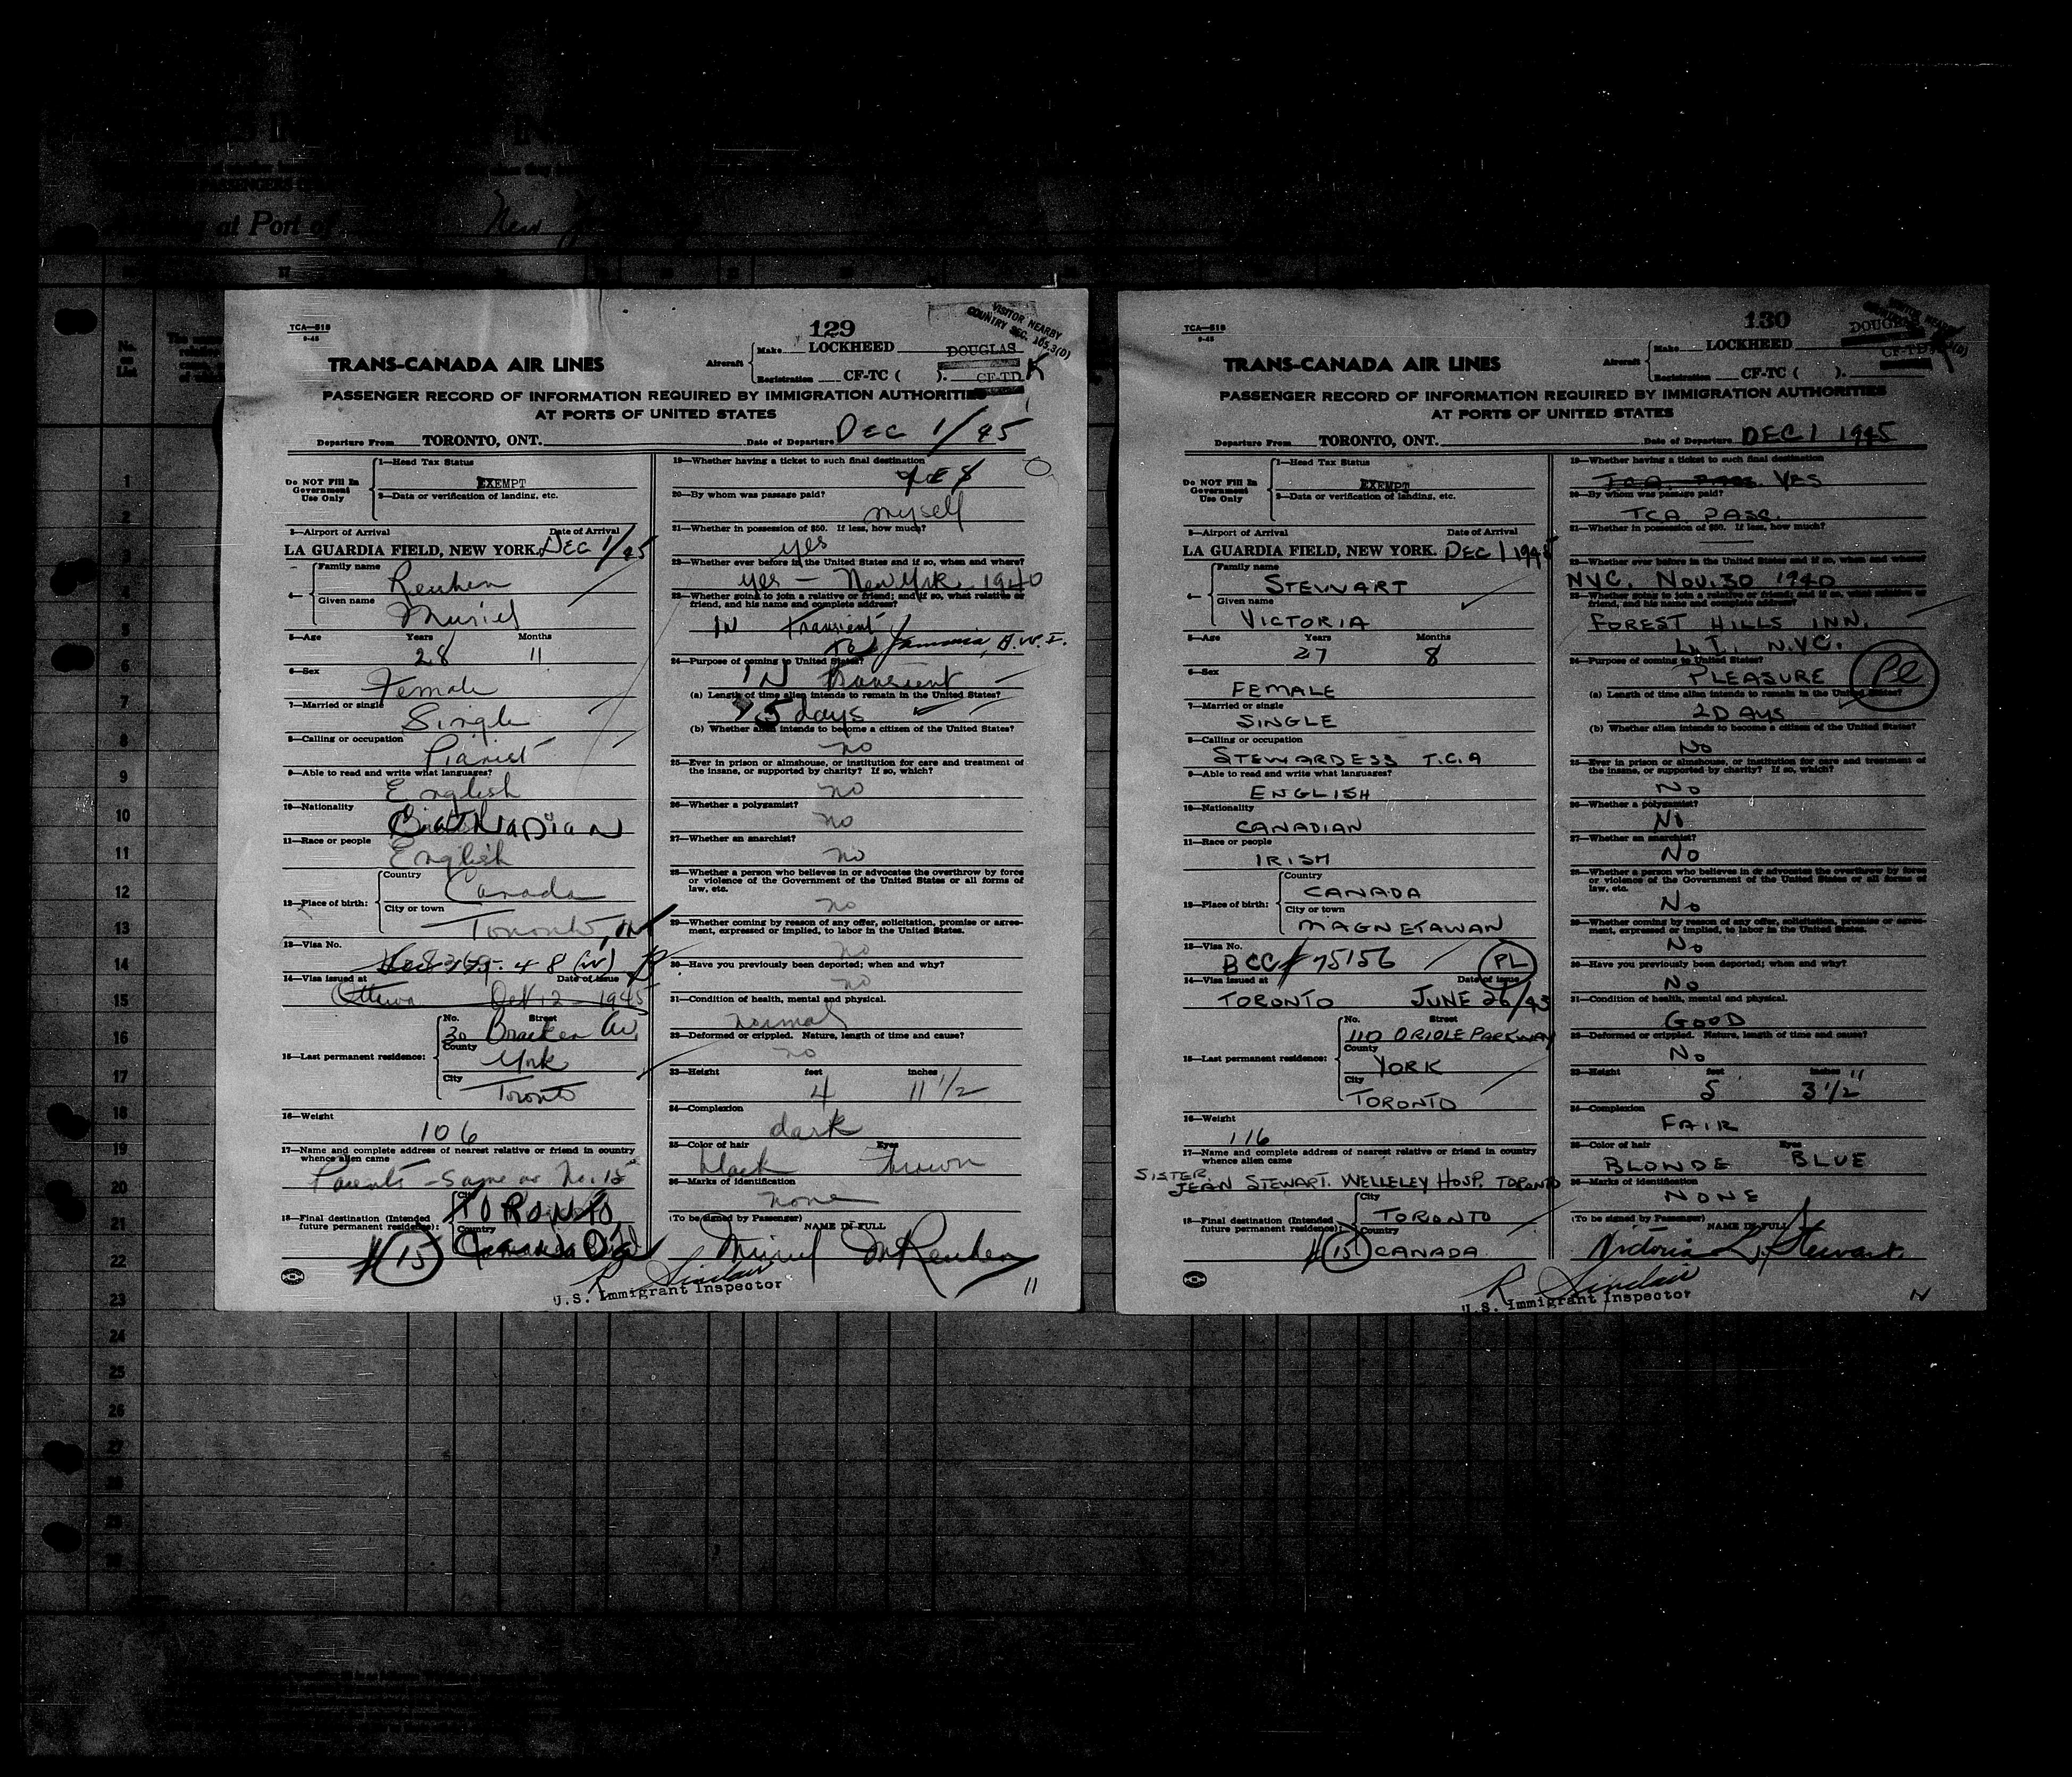 at Port of New
129
TCA—518
9-45
VISITOR NEARBY
COUNTRY SEC. 165.3(D)
TRANS-CANADA AIR LINES
Aircraft
Make LOCKHEED DOUGLAS
Registration CF-TC ( ). CF-TD K
PASSENGER RECORD OF INFORMATION REQUIRED BY IMMIGRATION AUTHORITIES
AT PORTS OF UNITED STATES
Departure From TORONTO, ONT. Date of Departure DEC 1/45
Do NOT Fill In
Government
Use Only
1—Head Tax Status
EXEMPT
2—Data or verification of landing, etc.
3—Airport of Arrival Date of Arrival
LA GUARDIA FIELD, NEW YORK. DEC 1/45
4—
Family name
Reuben
Given name
Muriel
5—Age Years Months
28 11
6—Sex
Female
7—Married or single
Single
8—Calling or occupation
Pianist
9—Able to read and write what languages?
English
10—Nationality
CANADIAN
11—Race or people
English
12—Place of birth:
Country
Canada
City or town
Toronto,
13—Visa No.
48 (w)
14—Visa issued at Date of Issue
Ottawa Oct 12 - 1945
15—Last permanent residence:
No. Street
30 Bracken Av.
County
York
City
Toronto
16—Weight
106
17—Name and complete address of nearest relative or friend in country
whence alien came
Parents - Same as No. 15
18—Final destination (Intended
future permanent residence):
City
TORONTO
Country
15
19—Whether having a ticket to such final destination
yes
20—By whom was passage paid?
myself
21—Whether in possession of $50. If less, how much?
yes
22—Whether ever before in the United States and if so, when and where?
yes — New York 1940
23—Whether going to join a relative or friend; and if so, what relative or
friend, and his name and complete address?
IN Transient
to Jamaica, B.W.I.
24—Purpose of coming to United States?
IN Transient
(a) Length of time alien intends to remain in the United States?
5 days
(b) Whether alien intends to become a citizen of the United States?
no
25—Ever in prison or almshouse, or institution for care and treatment of
the insane, or supported by charity? If so, which?
no
26—Whether a polygamist?
no
27—Whether an anarchist?
no
28—Whether a person who believes in or advocates the overthrow by force
or violence of the Government of the United States or all forms of
law, etc.
no
29—Whether coming by reason of any offer, solicitation, promise or agree-
ment, expressed or implied, to labor in the United States.
no
30—Have you previously been deported; when and why?
no
31—Condition of health, mental and physical.
normal
32—Deformed or crippled. Nature, length of time and cause?
no
33—Height feet inches
4 11 1/2
34—Complexion
dark
35—Color of hair Eyes
black brown
36—Marks of identification
none
(To be signed by Passenger) NAME IN FULL
Muriel M Reuben
R Sinclair
U.S. Immigrant Inspector
11
130
TCA—518
9-45
TRANS-CANADA AIR LINES
Aircraft
Make LOCKHEED
Registration CF-TC ( ).
PASSENGER RECORD OF INFORMATION REQUIRED BY IMMIGRATION AUTHORITIES
AT PORTS OF UNITED STATES
Departure From TORONTO, ONT. Date of Departure DEC 1 1945
Do NOT Fill In
Government
Use Only
1—Head Tax Status
EXEMPT
2—Data or verification of landing, etc.
3—Airport of Arrival Date of Arrival
LA GUARDIA FIELD, NEW YORK. DEC 1 1945
4—
Family name
STEWART
Given name
VICTORIA
5—Age Years Months
27 8
6—Sex
FEMALE
7—Married or single
SINGLE
8—Calling or occupation
STEWARDESS T.C.A
9—Able to read and write what languages?
ENGLISH
10—Nationality
CANADIAN
11—Race or people
IRISH
12—Place of birth:
Country
CANADA
City or town
MAGNETAWAN
13—Visa No.
BCC# 75156 PL
14—Visa issued at Date of Issue
TORONTO JUNE 26/45
15—Last permanent residence:
No. Street
110 ORIOLE PARKWAY
County
YORK
City
TORONTO
16—Weight
116
17—Name and complete address of nearest relative or friend in country
whence alien came
SISTER.
JEAN STEWART. WELLELEY HOSP. TORONTO
18—Final destination (Intended
future permanent residence):
City
TORONTO
Country
15 CANADA
19—Whether having a ticket to such final destination
YES
20—By whom was passage paid?
TCA PASS.
21—Whether in possession of $50. If less, how much?
22—Whether ever before in the United States and if so, when and where?
NYC. NOV. 30 1940
23—Whether going to join a relative or friend; and if so, what relative or
friend, and his name and complete address?
FOREST HILLS INN.
L.I. N.Y.C.
24—Purpose of coming to United States?
PLEASURE Pl
(a) Length of time alien intends to remain in the United States?
2 DAYS
(b) Whether alien intends to become a citizen of the United States?
No
25—Ever in prison or almshouse, or institution for care and treatment of
the insane, or supported by charity? If so, which?
No
26—Whether a polygamist?
No
27—Whether an anarchist?
No
28—Whether a person who believes in or advocates the overthrow by force
or violence of the Government of the United States or all forms of
law, etc.
No
29—Whether coming by reason of any offer, solicitation, promise or agree-
ment, expressed or implied, to labor in the United States.
No
30—Have you previously been deported; when and why?
No
31—Condition of health, mental and physical.
GOOD
32—Deformed or crippled. Nature, length of time and cause?
No
33—Height feet inches
5 3 1/2"
34—Complexion
FAIR
35—Color of hair Eyes
BLONDE BLUE
36—Marks of identification
NONE
(To be signed by Passenger) NAME IN FULL
Victoria L. Stewart.
R Sinclair
U.S. Immigrant Inspector